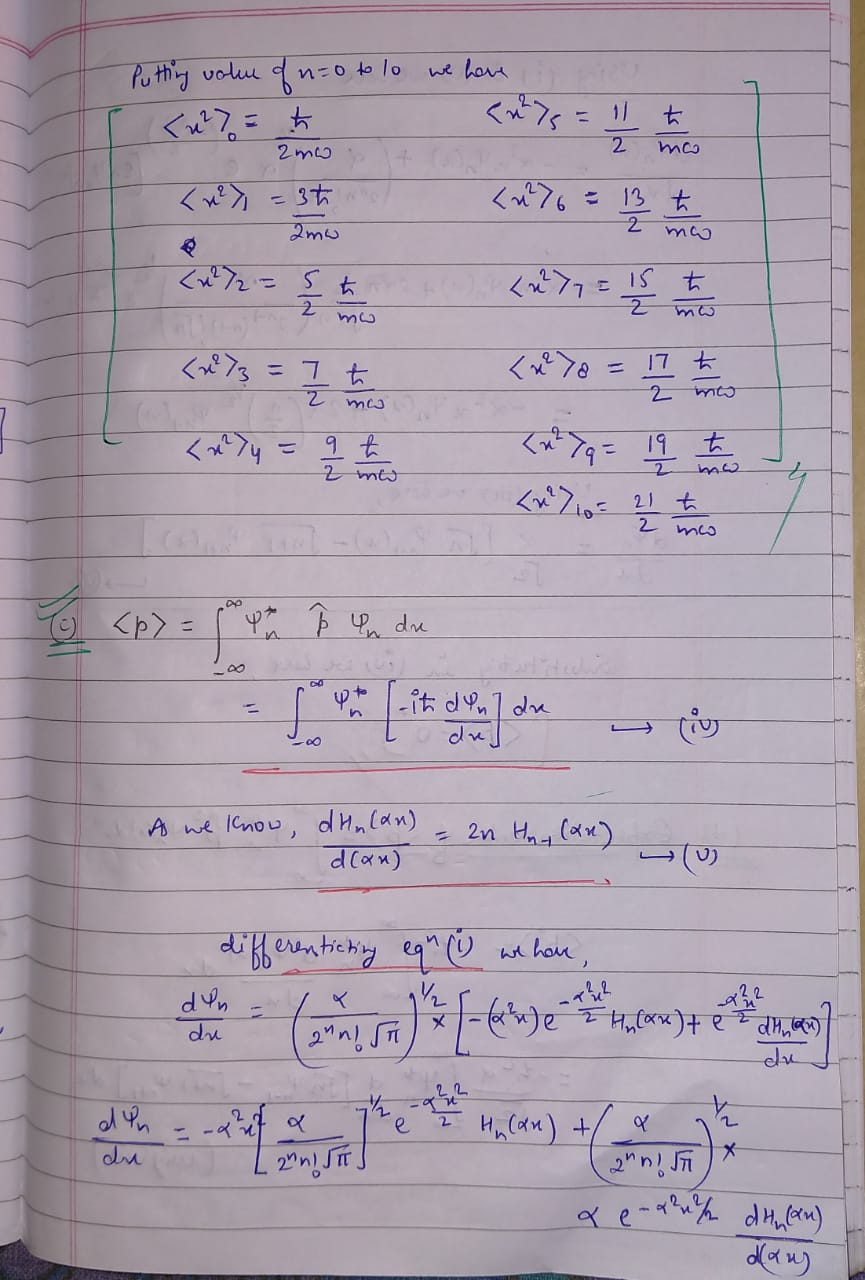 Putting value of n=0 to 10 we have
<x²>₀ = ħ/2mω <x²>₅ = 11/2 ħ/mω
<x²>₁ = 3ħ/2mω <x²>₆ = 13/2 ħ/mω
<x²>₂ = 5/2 ħ/mω <x²>₇ = 15/2 ħ/mω
<x²>₃ = 7/2 ħ/mω <x²>₈ = 17/2 ħ/mω
<x²>₄ = 9/2 ħ/mω <x²>₉ = 19/2 ħ/mω
<x²>₁₀ = 21/2 ħ/mω
(c) <p> = ∫_{-∞}^{∞} φₙ* p̂ φₙ dx
= ∫_{-∞}^{∞} φₙ* [-iħ dφₙ/dx] dx → (iv)
As we know, dHₙ(αx)/d(αx) = 2n Hₙ₋₁(αx) → (v)
differenticting eqⁿ (i) we have,
dφₙ/dx = (α/2ⁿn!√π)^{1/2} × [-(α²x)e^{-α²x²/2} Hₙ(αx) + e^{-α²x²/2} dHₙ(αx)/dx]
dφₙ/dx = -α²x [α/2ⁿn!√π]^{1/2} e^{-α²x²/2} Hₙ(αx) + (α/2ⁿn!√π)^{1/2} ×
α e^{-α²x²/2} dHₙ(αx)/d(αx)